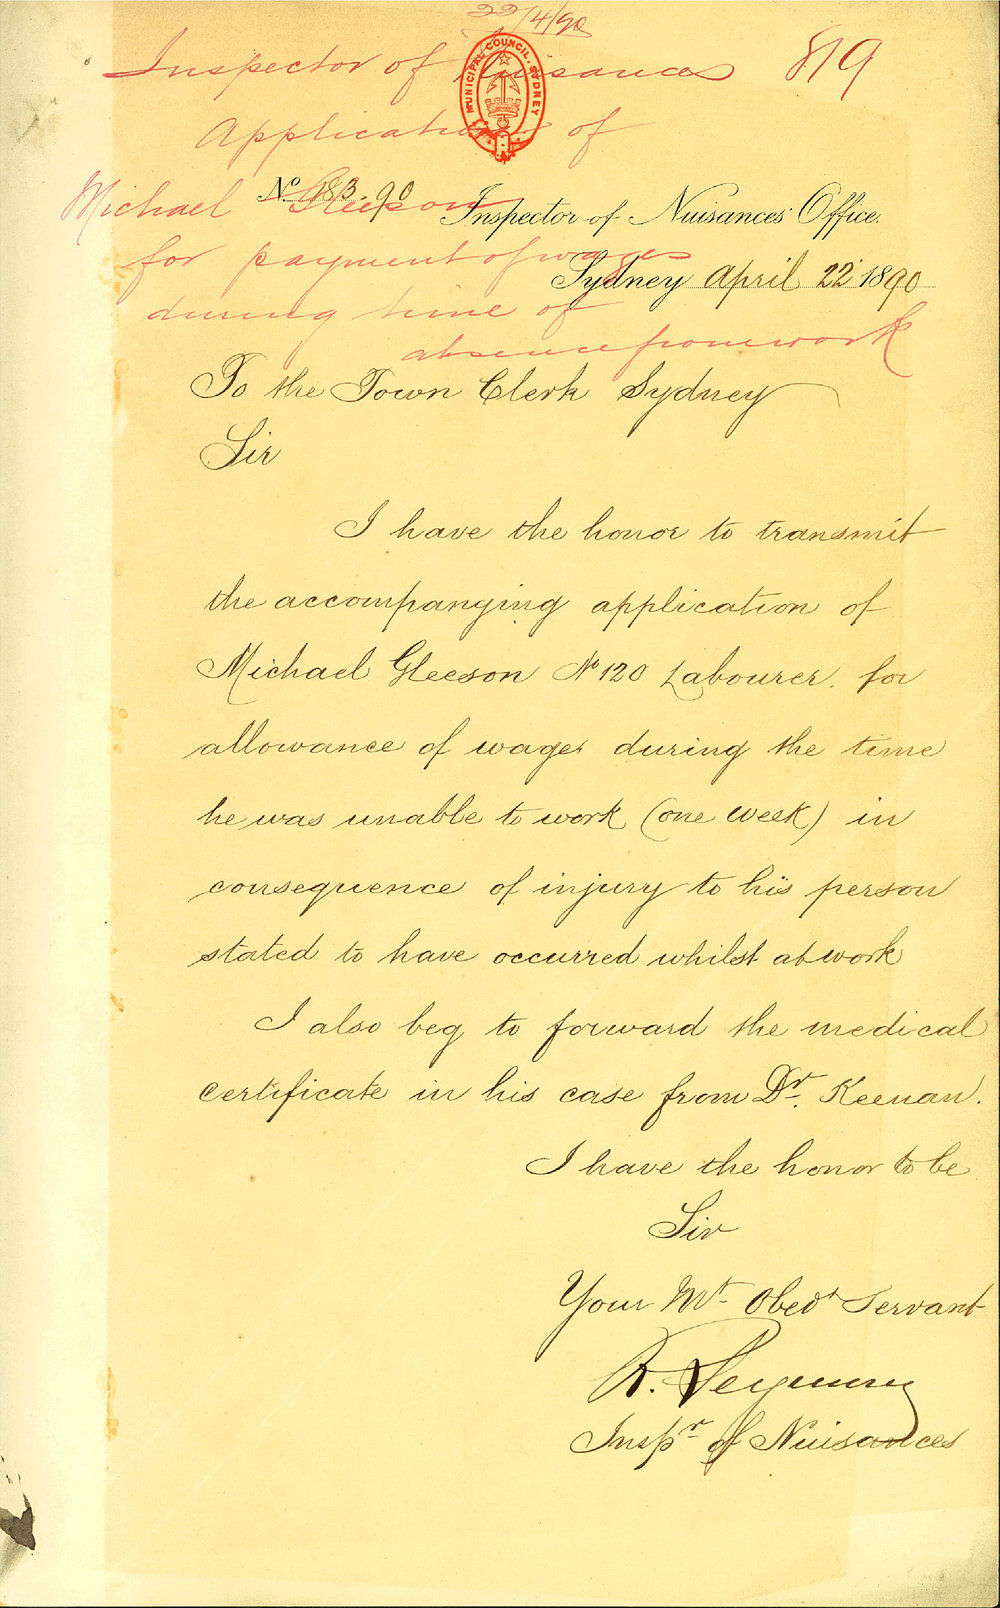 22/4/90
Inspector of Nuisances 819
MUNICIPAL COUNCIL. SYDNEY
Application of
Michael Gleeson
for payment of wages
during time of
absence from work
No. 183.90
Inspector of Nuisances' Office.
Sydney April 22 1890
To the Town Clerk Sydney
Sir
I have the honor to transmit
the accompanying application of
Michael Gleeson No 120 Labourer. for
allowance of wages during the time
he was unable to work (one week) in
consequence of injury to his person
stated to have occurred whilst at work
I also beg to forward the medical
certificate in his case from Dr. Keenan.
I have the honor to be
Sir
Your Mt. Obedt Servant
R. Seymour
Inspr of Nuisances